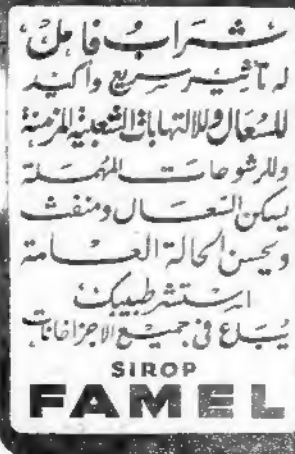 شراب فامل
له تأثير سريع وأكيد
للسعال وللالتهابات الشعبية المزمنة
وللرشوحات المهملة
يسكن السعال ومنفث
ويحسن الحالة العامة
استشر طبيبك
يباع فى جميع الاجزاخانات
SIROP
FAMEL